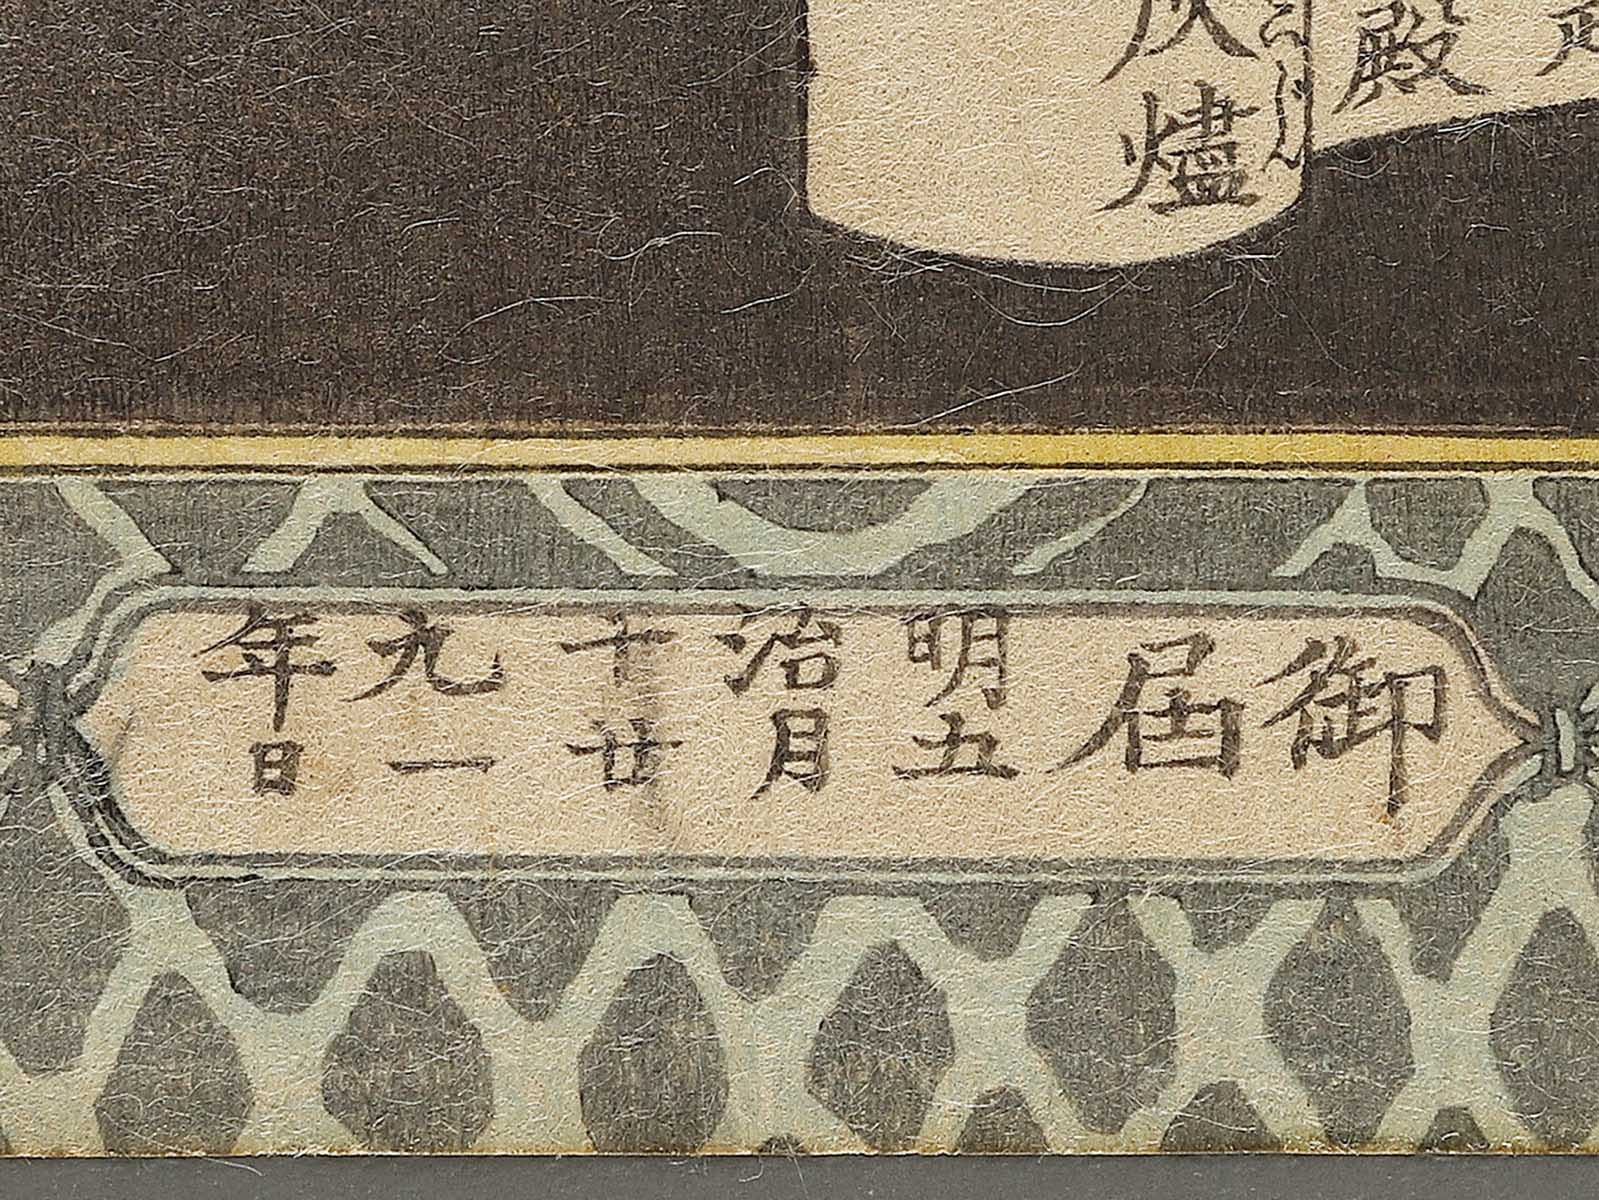 殿
灰燼
こじん
御届
明治十九年
五月廿一日